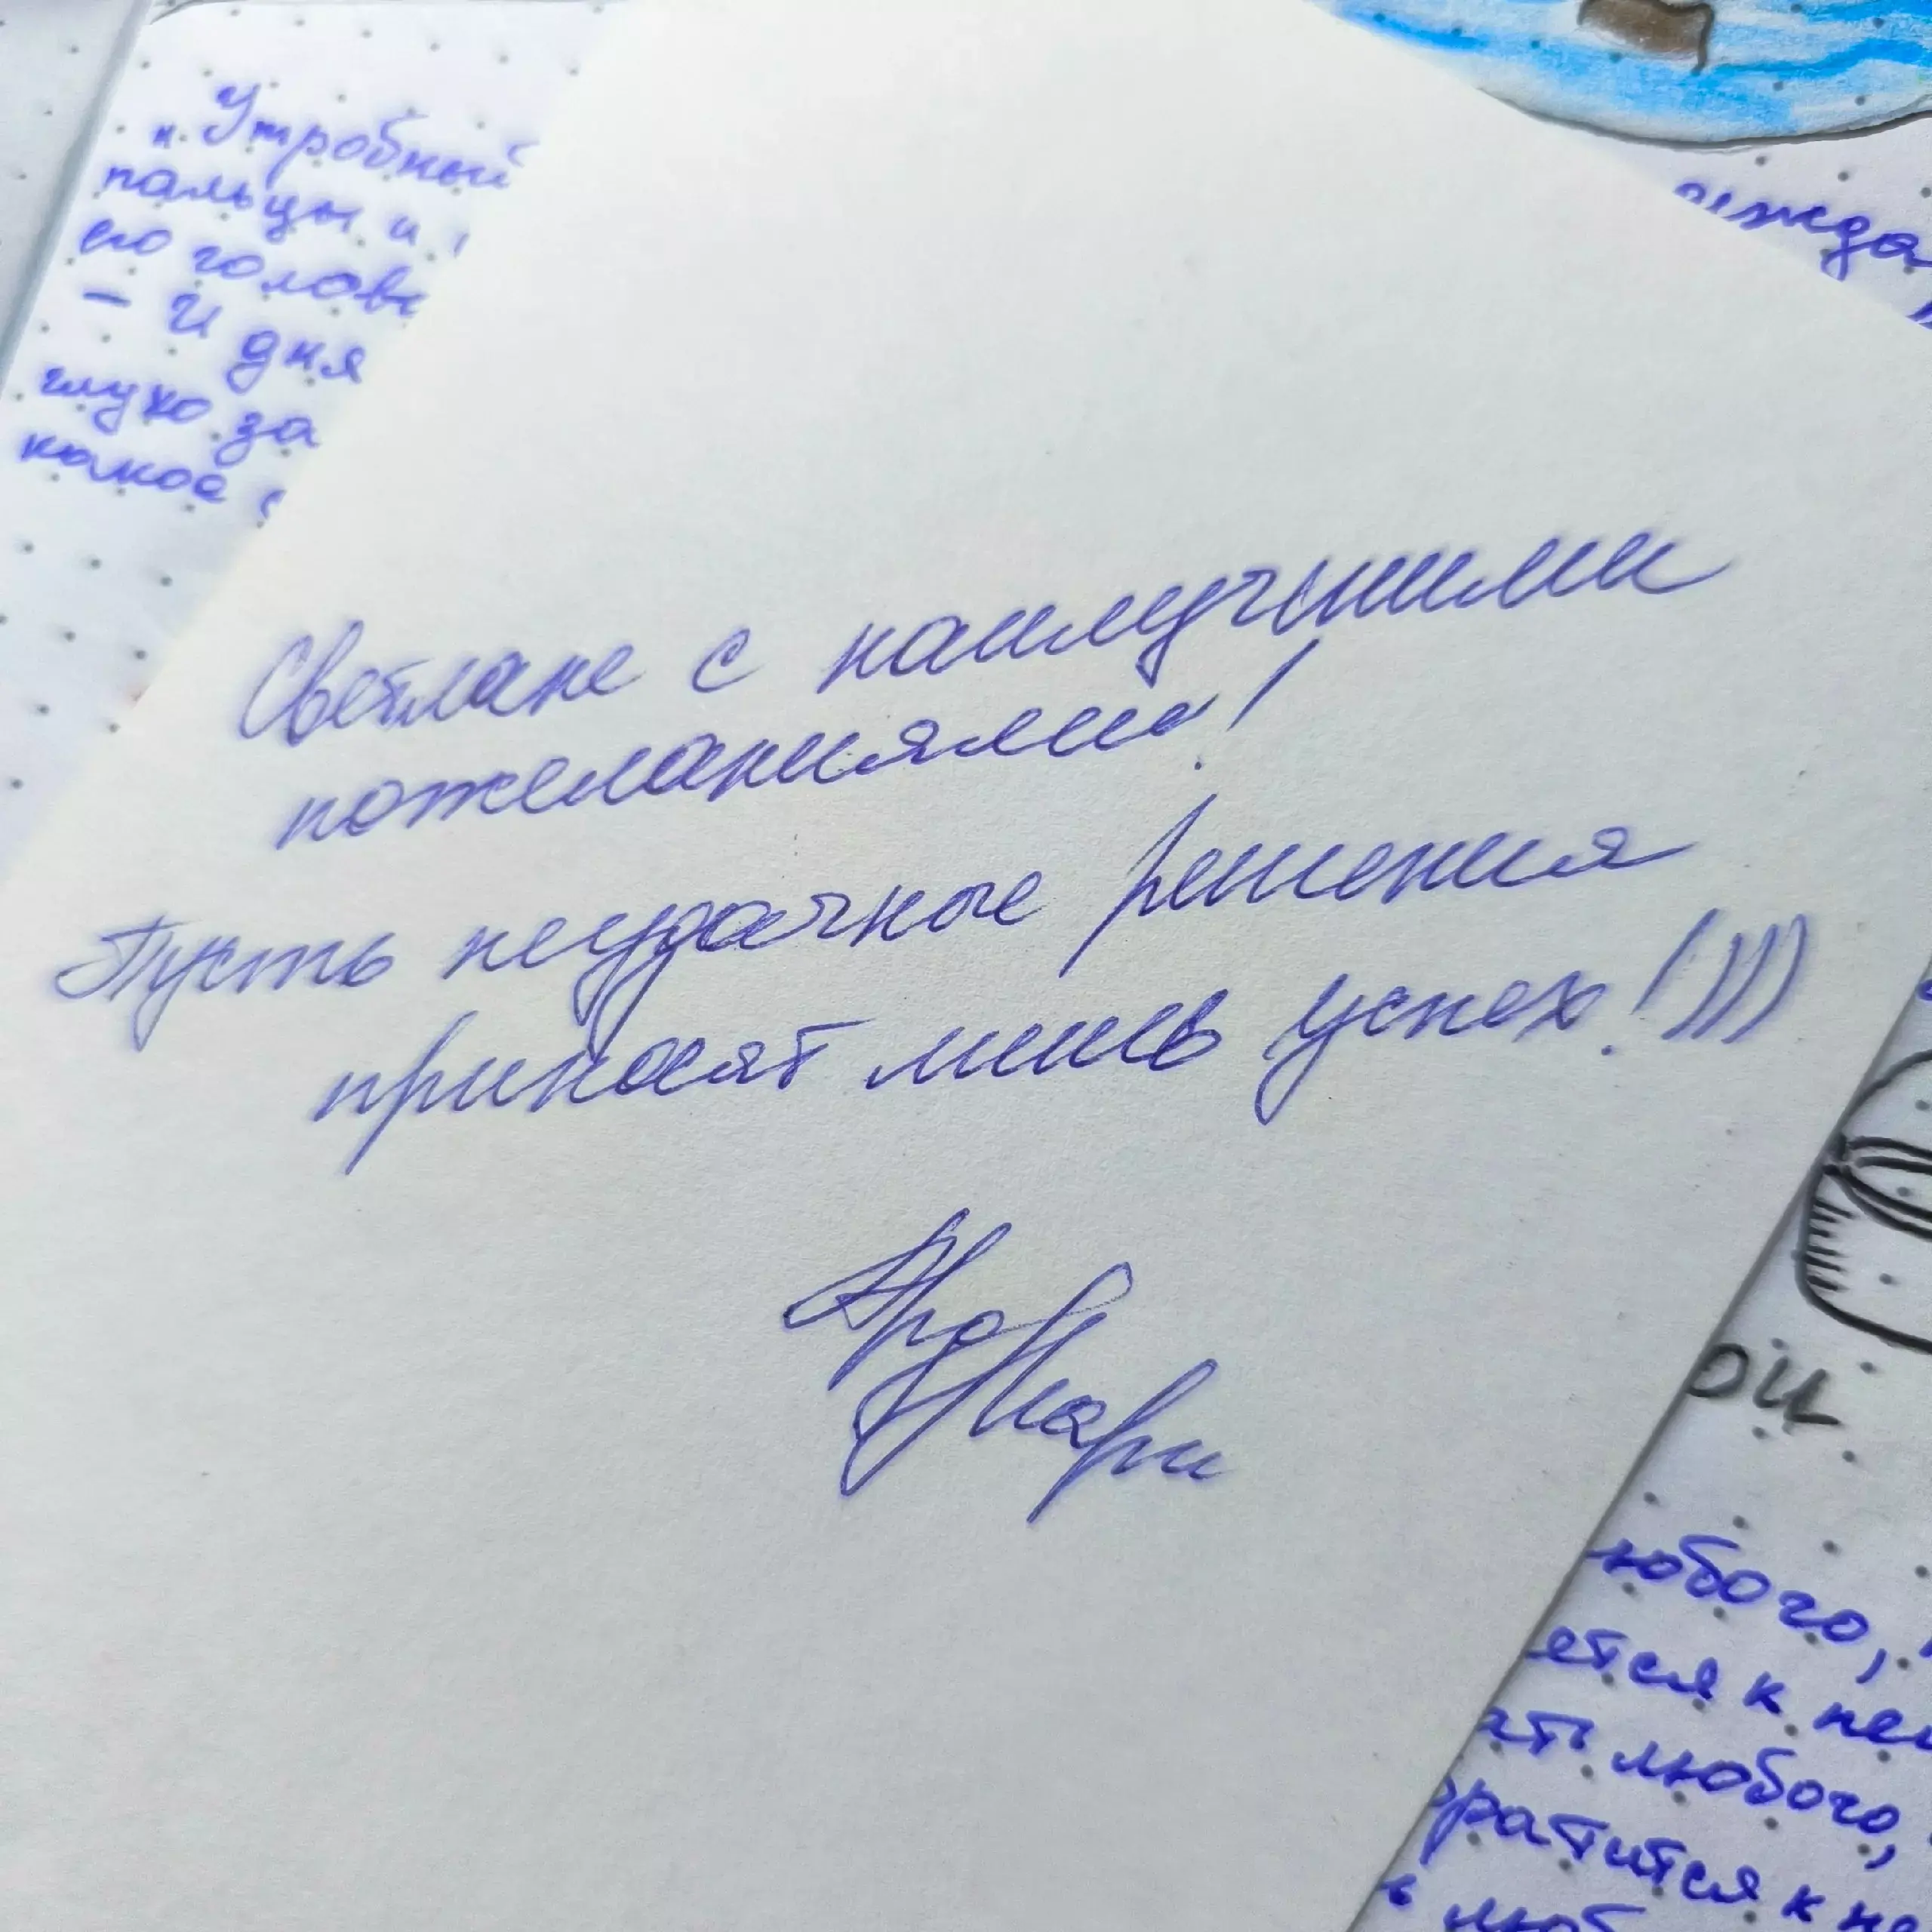 „Утробный
пальцы и
его голове
– И дня
глухо за
какое
Светлане с наилучшими
пожеланиями!
Пусть неудачные решения
приносят лишь успех!)))
ои
юбого,
ется к
ать любого,
вратится к